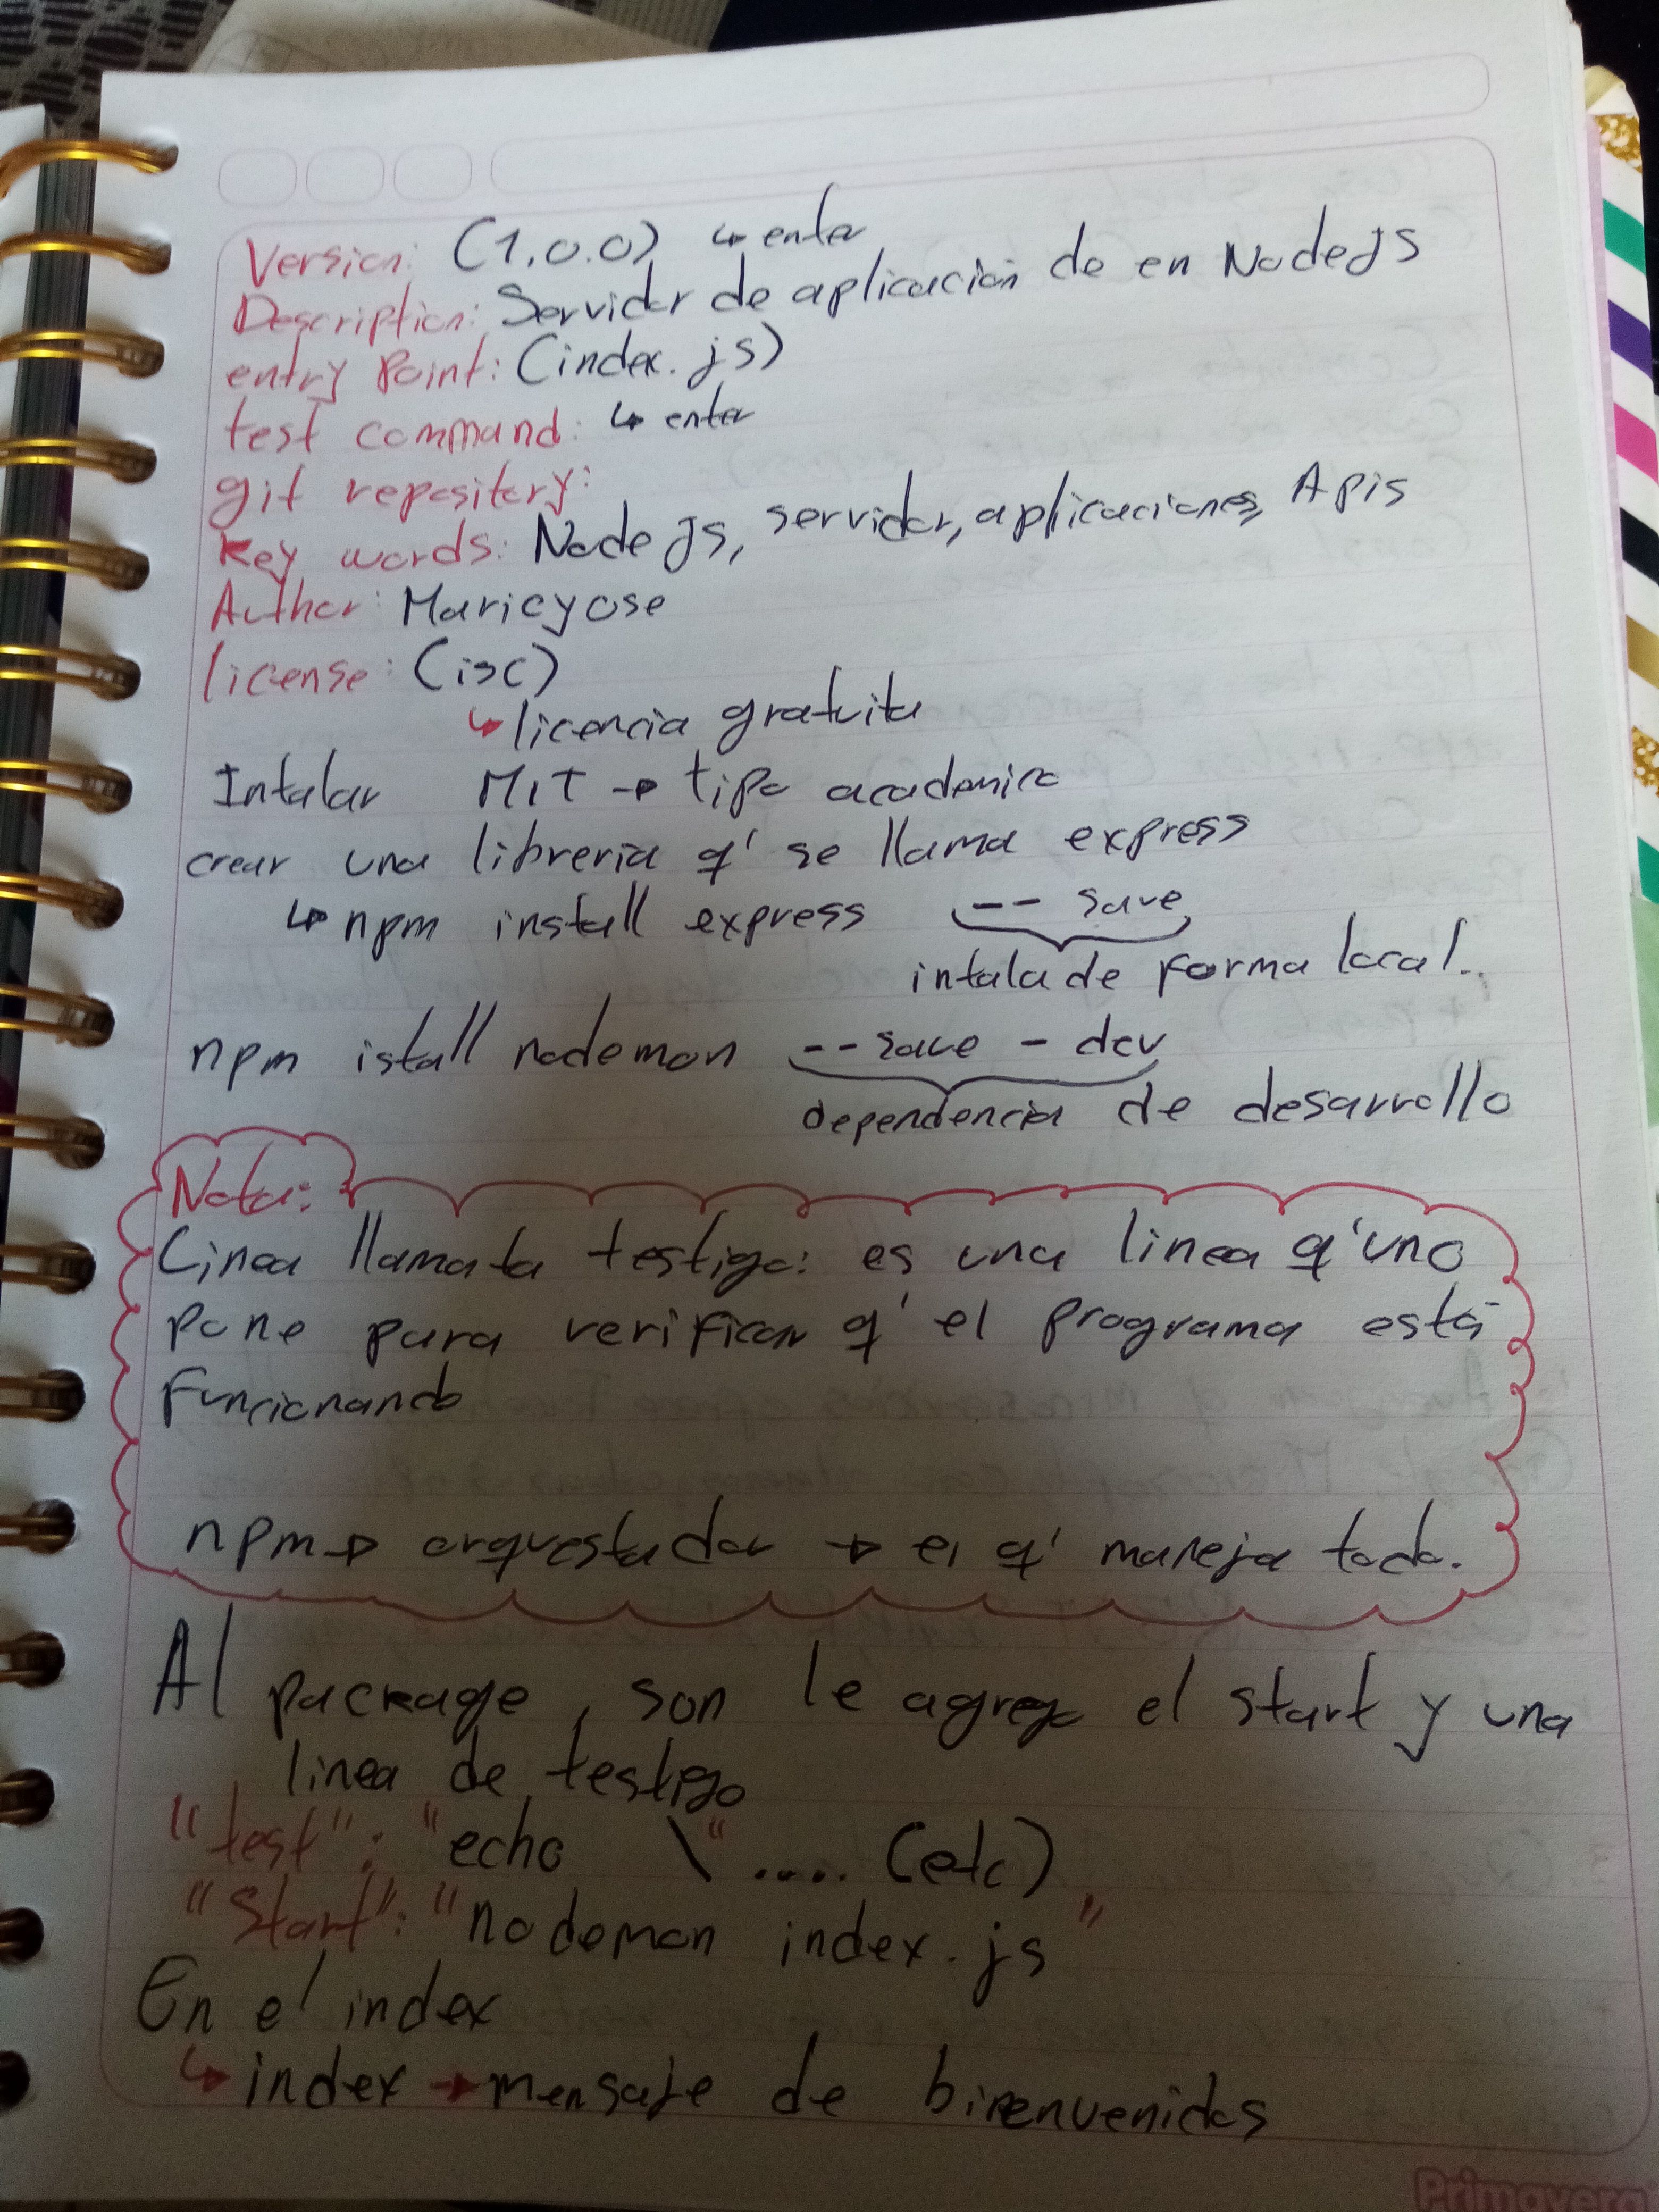 Version: (1.0.0) ↳ enter
Description: Servidor de aplicación de en NodeJS
entry Point: (index.js)
test command: ↳ enter
git repository:
Key words: Node Js, servidor, aplicaciones, Apis
Author: Maricyose
license: (isc)
↳ licencia gratuita
Intalar MIT → tipo academico
crear una libreria q' se llama express
↳ npm install express -- save
intala de forma local.
npm istall nodemon -- save - dev
dependencia de desarrollo
Nota:
Linea llamata testigo: es una linea q' uno
pone para verificar q' el programa está
Funcionando
npm → orquestador → el q' maneja todo.
Al package, son le agrego el start y una
linea de testigo
"test": "echo \" ..... (etc)
"Start": "nodemon index.js"
En el index
↳ index → mensaje de birenvenidos
Primavera